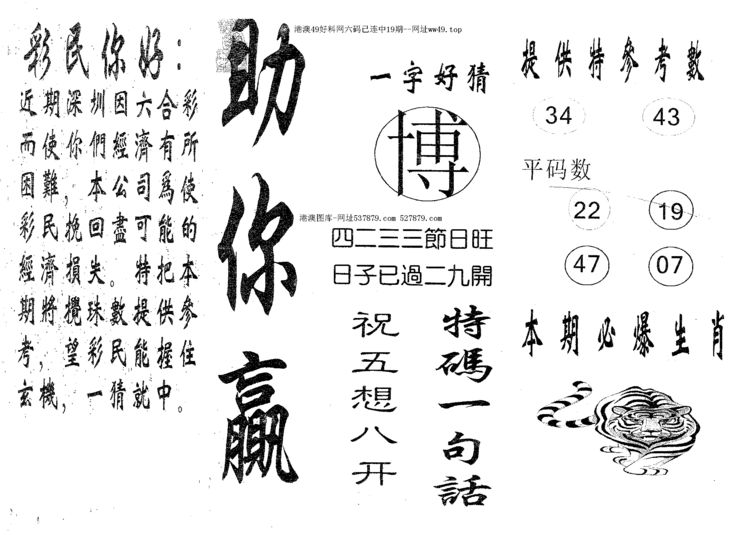 港澳49好料网六码已连中19期--网址ww49.top
彩民你好：
近期深圳因六合彩
而使你們經濟有所
困難，本公司爲使
彩民挽回盡可能的
經濟損失。特把本
期將攪珠數提供參
考，望彩民能握住
玄機，一猜就中。
助你贏
一字好猜
博
港澳图库-网址537879.com 527879.com
四二三三節日旺
日子已過二九開
特碼一句話
祝五想八开
提供特參考數
34 43
平码数
22 19
47 07
本期必爆生肖